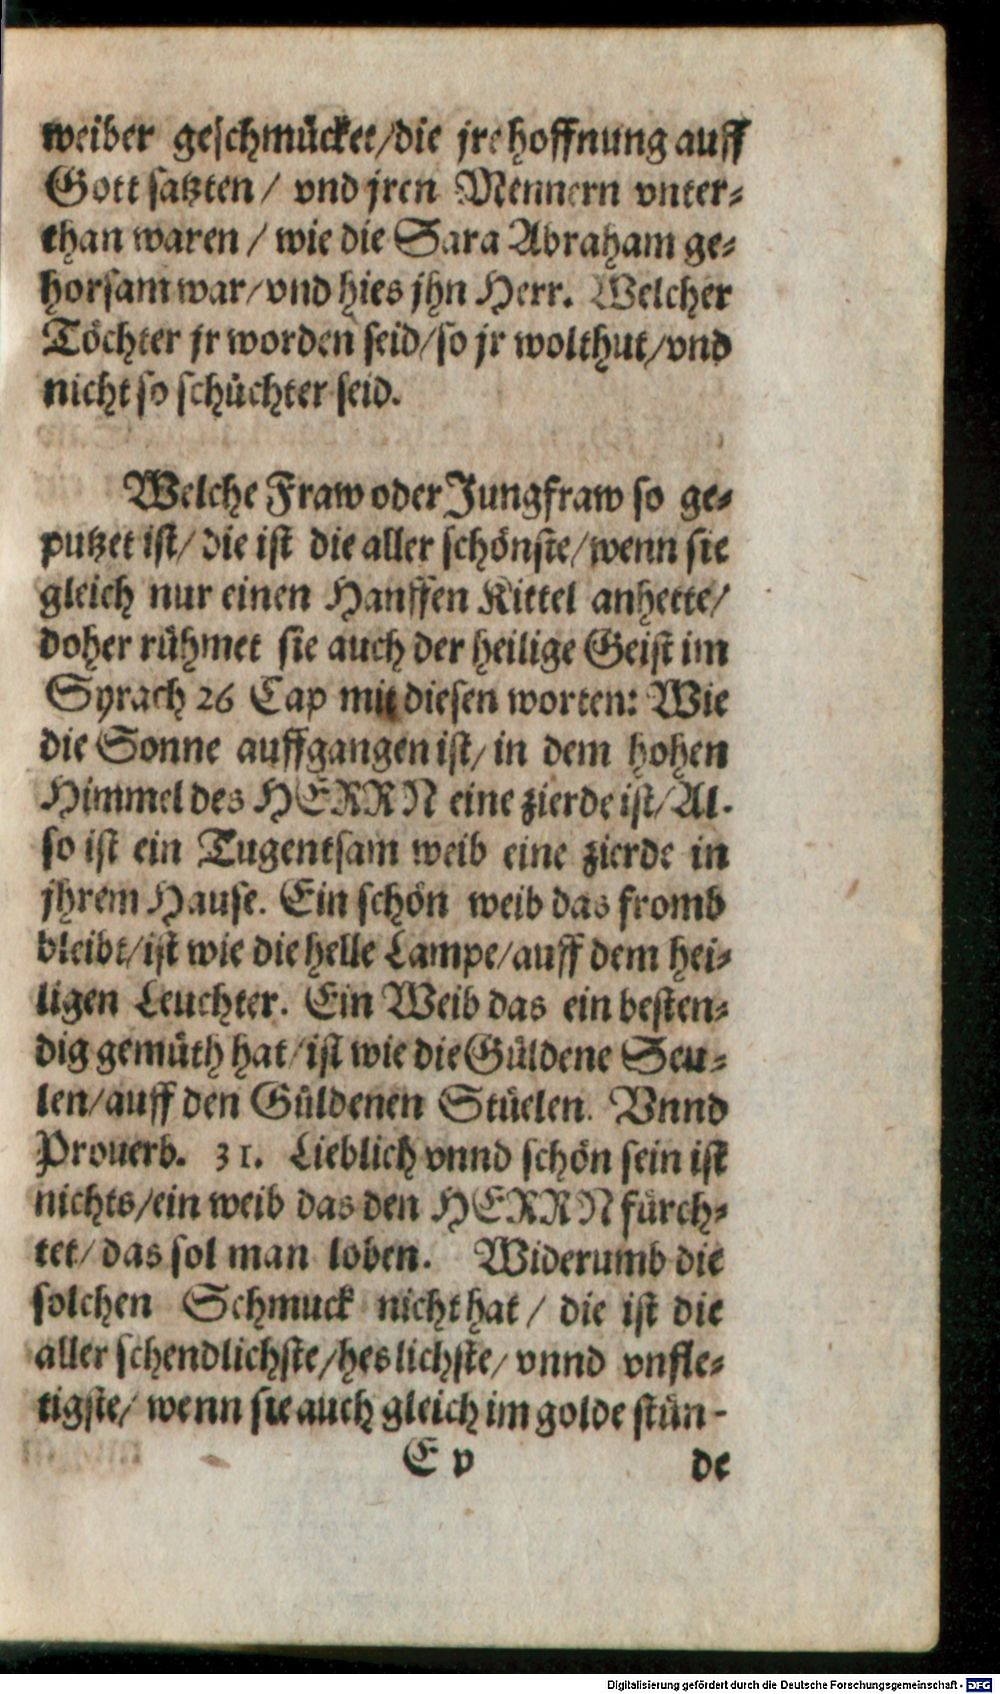 weiber geschmücket/die jre hoffnung auff
Gott satzten/ vnd jren Mennern vnter-
than waren/ wie die Sara Abraham ge-
horsam war/vnd hies jhn Herr. Welcher
Töchter jr worden seid/so jr wolthut/vnd
nicht so schüchter seid.
Welche Fraw oder Jungfraw so ge-
putzet ist/ die ist die aller schönste/wenn sie
gleich nur einen Hanffen Kittel anhette/
doher rühmet sie auch der heilige Geist im
Syrach 26 Cap mit diesen worten: Wie
die Sonne auffgangen ist/ in dem hohen
Himmel des HERRN eine zierde ist/Al-
so ist ein Tugentsam weib eine zierde in
jhrem Hause. Ein schön weib das fromb
bleibt/ist wie die helle Lampe/auff dem hei-
ligen Leuchter. Ein Weib das ein besten-
dig gemüth hat/ist wie die Güldene Seu-
len/auff den Güldenen Stüelen. Vnnd
Prouerb. 31. Lieblich vnnd schön sein ist
nichts/ein weib das den HERRN fürch-
tet/ das sol man loben. Widerumb die
solchen Schmuck nicht hat/ die ist die
aller schendlichste/heslichste/ vnnd vnfle-
tigste/ wenn sie auch gleich im golde stün-
E v de
Digitalisierung gefördert durch die Deutsche Forschungsgemeinschaft - DFG